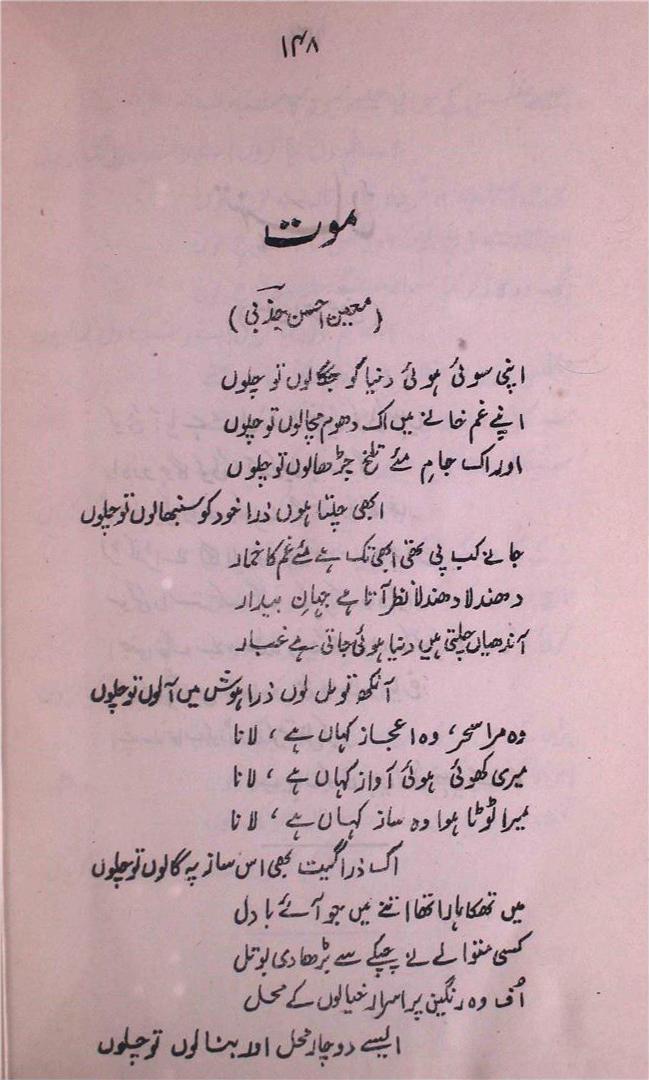 ۱۴۸
موت
(معین احسن جذبی)
اپنی سوئی ہوئی دنیا کو جگالوں تو چلوں
اپنے غم خانے میں اک دھوم مچالوں تو چلوں
اور اک جامِ مئے تلخ چڑھالوں تو چلوں
ابھی چلتا ہوں ذرا خود کو سنبھالوں تو چلوں
جانے کب پی تھی ابھی تک ہے مئے غم کا خمار
دھندلا دھندلا نظر آتا ہے جہانِ بیدار
آندھیاں چلتی ہیں دنیا ہوئی جاتی ہے غبار
آنکھ تو مل لوں ذرا ہوش میں آلوں تو چلوں
وہ مرا سحر، وہ اعجاز کہاں ہے، لانا
میری کھوئی ہوئی آواز کہاں ہے، لانا
میرا ٹوٹا ہوا وہ ساز کہاں ہے، لانا
اک ذرا گیت بھی اس ساز پہ گالوں تو چلوں
میں تھکا ہارا تھا اتنے میں جو آئے بادل
کسی متوالے نے چپکے سے بڑھادی بوتل
اُف وہ رنگین پر اسرار خیالوں کے محل
ایسے دو چار محل اور بنالوں تو چلوں